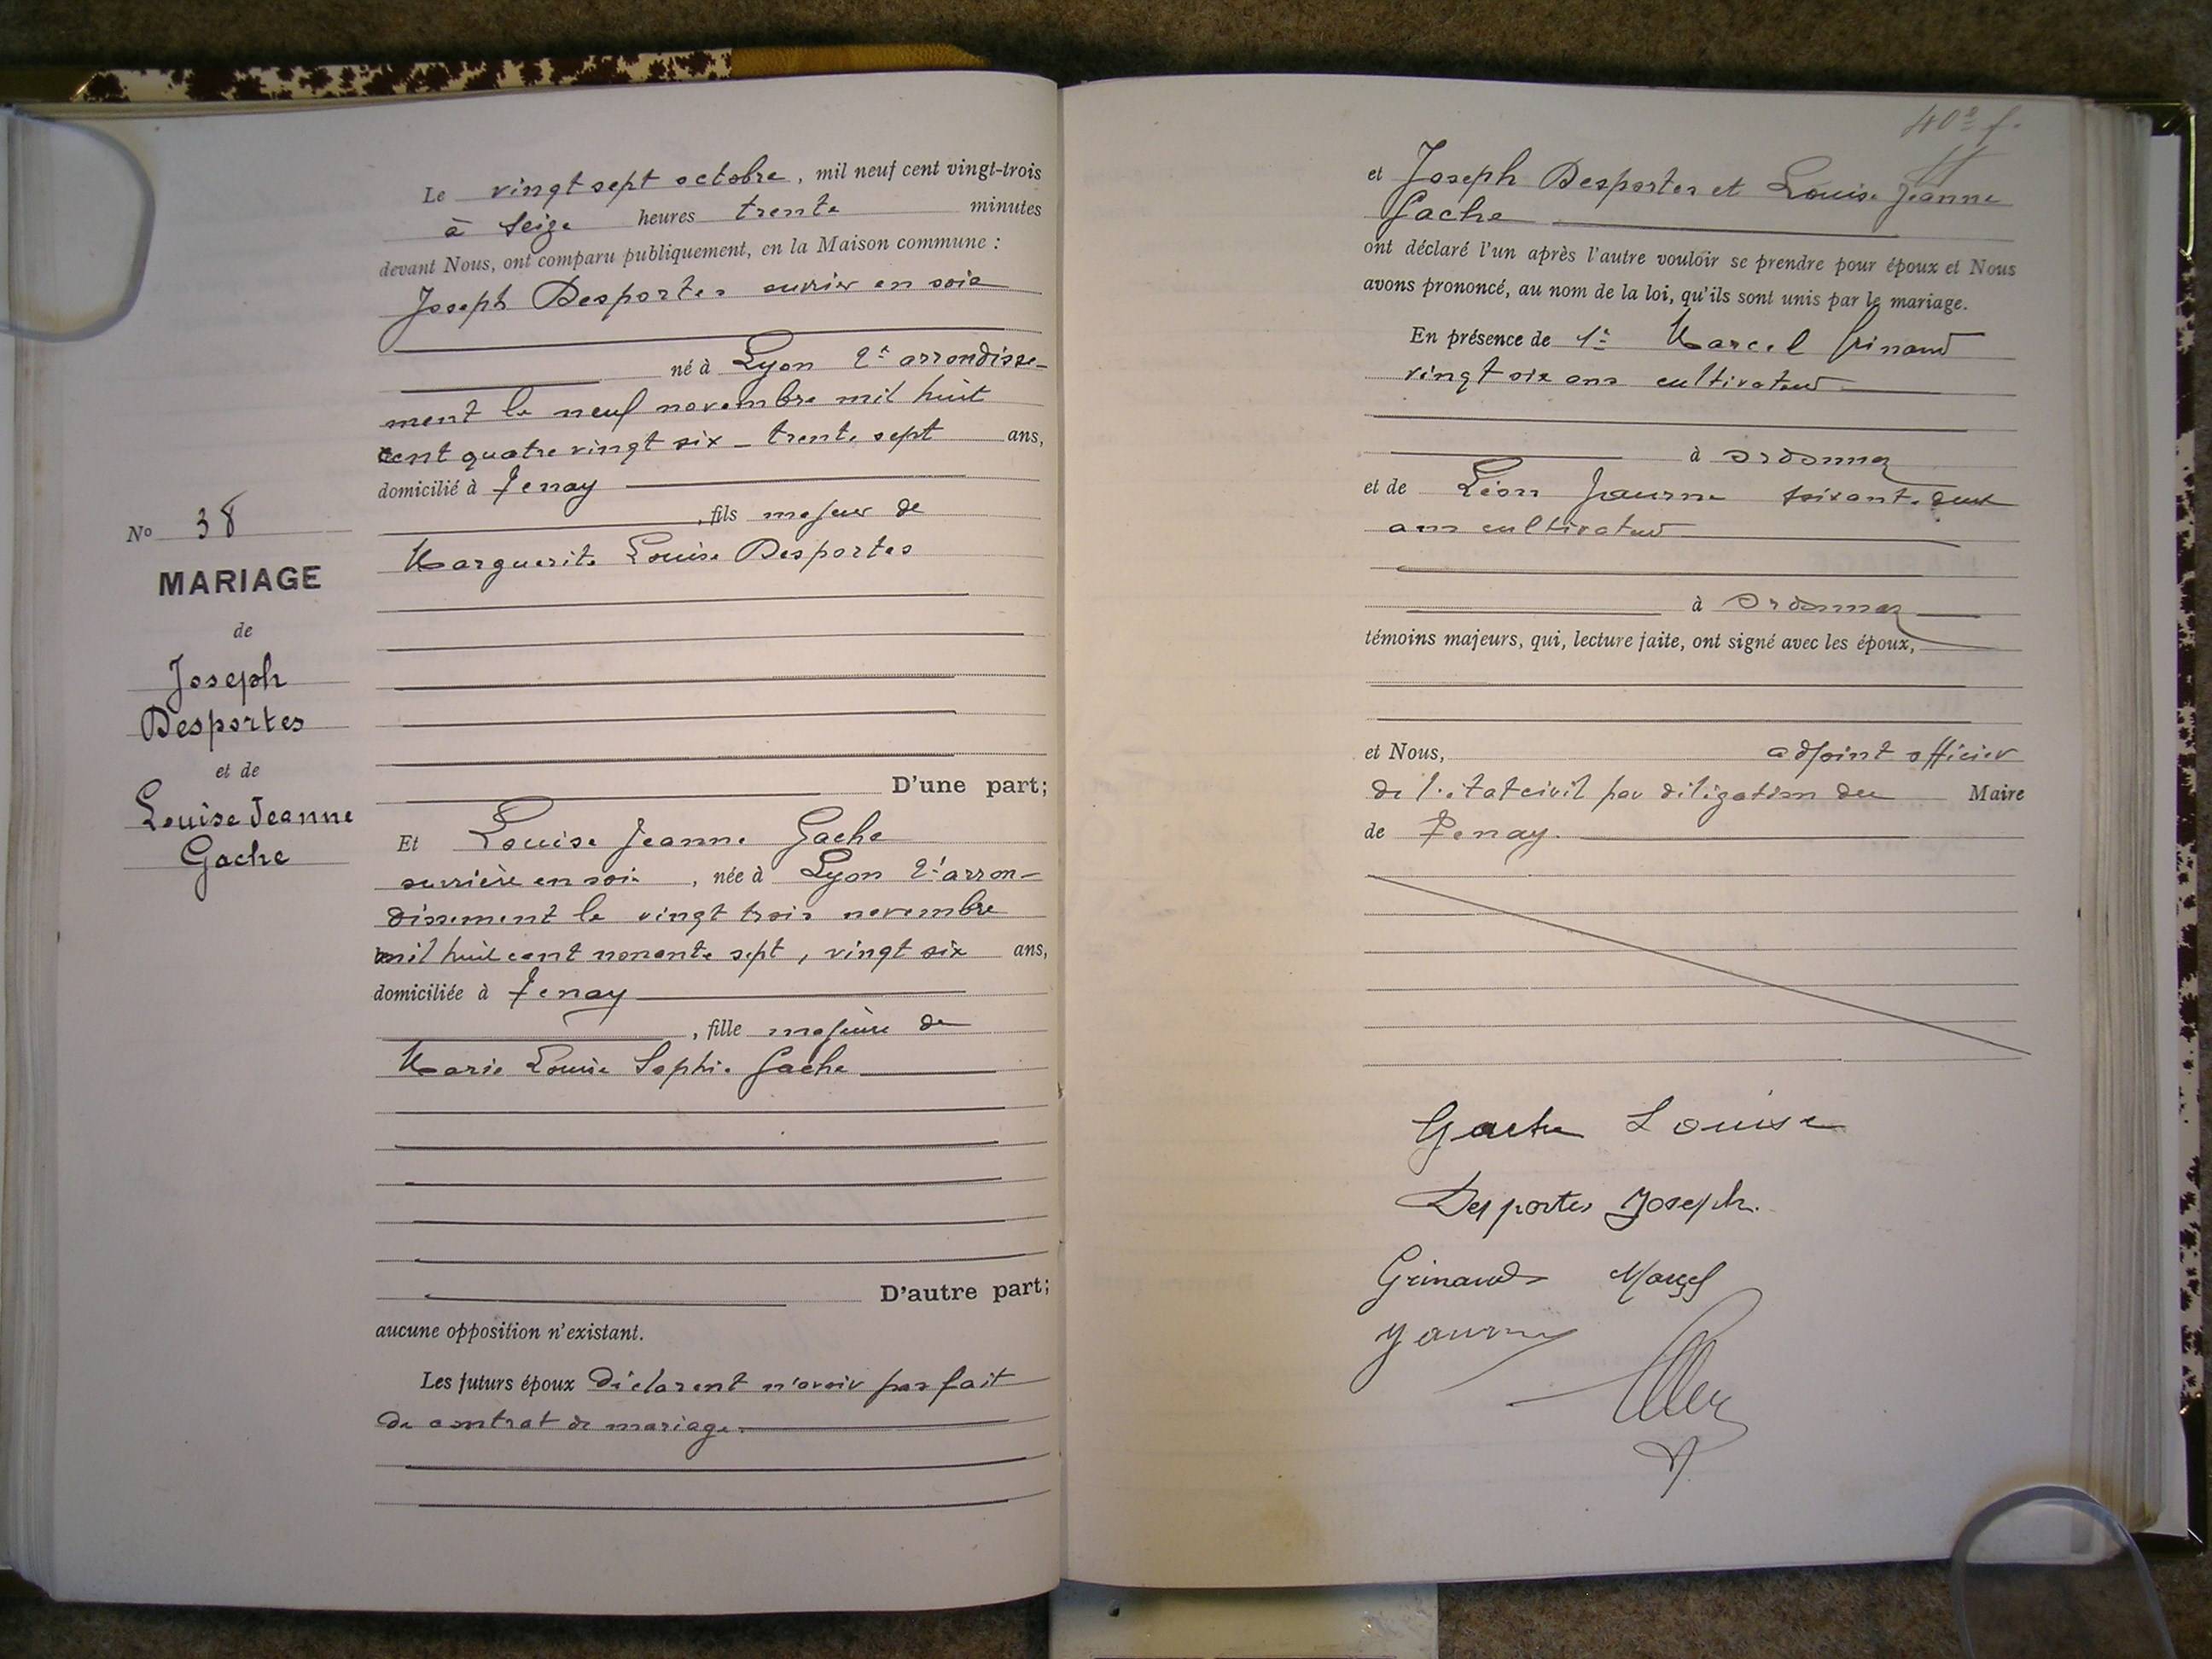 No 38
MARIAGE
de
Joseph
Desportes
et de
Louise Jeanne
Gache
Le vingt sept octobre, mil neuf cent vingt-trois
à seize heures trente minutes
devant Nous, ont comparu publiquement, en la Maison commune :
Joseph Desportes ouvrier en soie
né à Lyon 2e arrondisse-
ment le neuf novembre mil huit
cent quatre vingt six - trente sept ans,
domicilié à Tenay
, fils majeur de
Marguerite Louise Desportes
D'une part;
Et Louise Jeanne Gache
ouvrière en soie, née à Lyon 2e arron-
dissement le vingt trois novembre
mil huit cent nonante sept, vingt six ans,
domiciliée à Tenay
, fille majeure de
Marie Louise Sophie Gache
D'autre part;
aucune opposition n'existant.
Les futurs époux déclarent n'avoir pas fait
de contrat de mariage.
40e f.
et Joseph Desportes et Louise Jeanne
Gache
ont déclaré l'un après l'autre vouloir se prendre pour époux et Nous
avons prononcé, au nom de la loi, qu'ils sont unis par le mariage.
En présence de 1e Marcel Grinand
vingt six ans cultivateur
à Ordonnaz
et de Léon Journe soixante deux
ans cultivateur
à Ordonnaz
témoins majeurs, qui, lecture faite, ont signé avec les époux,
et Nous, adjoint officier
de l'état civil par délégation du Maire
de Tenay.
Gache Louise
Desportes Joseph.
Grinand Marcel